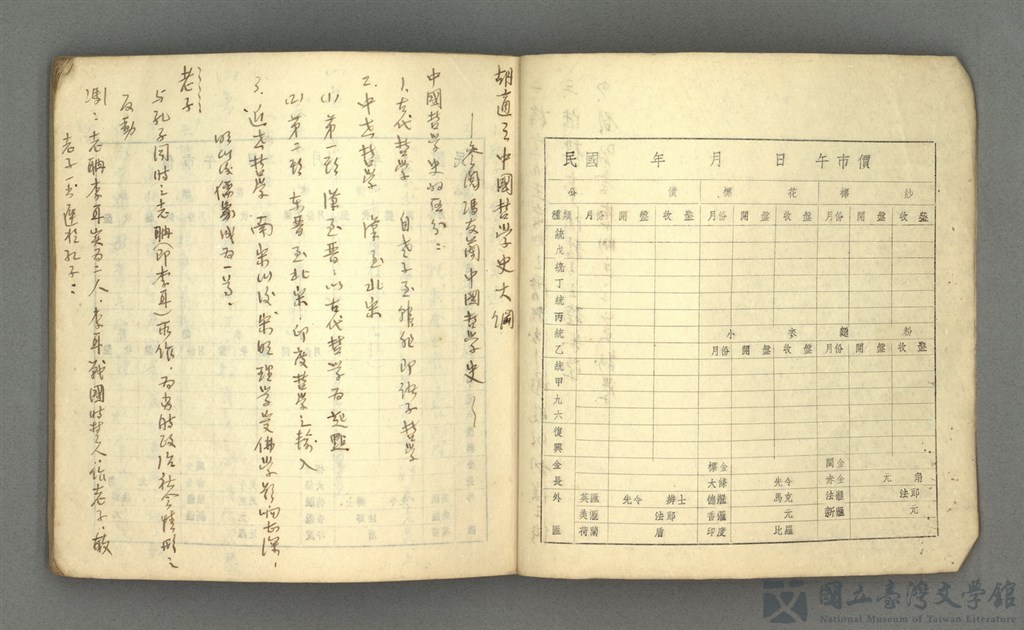 胡適之中國哲學史大綱
—參閱馮友蘭中國哲學史—
中國哲學史的區分：
1、古代哲學　自老子至韓非即諸子哲學
2、中世哲學　漢至北宋
(1) 第一期 漢至晉：以古代哲學為起點
(2) 第二期 東晉至北宋、印度哲學之輸入
3、近世哲學 南宋以後 宋明理學受佛學影响甚深、
明以後儒家成為一尊、
老子
與孔子同時之老聃(即李耳)所作、为當時政治社會情形之
反動
馮：老聃李耳实为二人、李耳戰國時人、作老子、故
老子一书應在孔子
民國　年　月　日　午市價
公　債　標　花　標　紗
種類　月份　開　盤　收　盤　月份　開　盤　收　盤　月份　開　盤　收　盤
統戊
統丁
統丙
小　麥　麵　粉
統乙　月份　開　盤　收　盤　月份　開　盤　收　盤
統甲
九六
復興
金　標金　關金
長　大條　先令　赤金　元　角
外　英匯　先令　辨士　德匯　馬克　法匯　法郎
美匯　法郎　香匯　元　新匯　元
匯　荷蘭　盾　印度　比羅
國立臺灣文學館
National Museum of Taiwan Literature